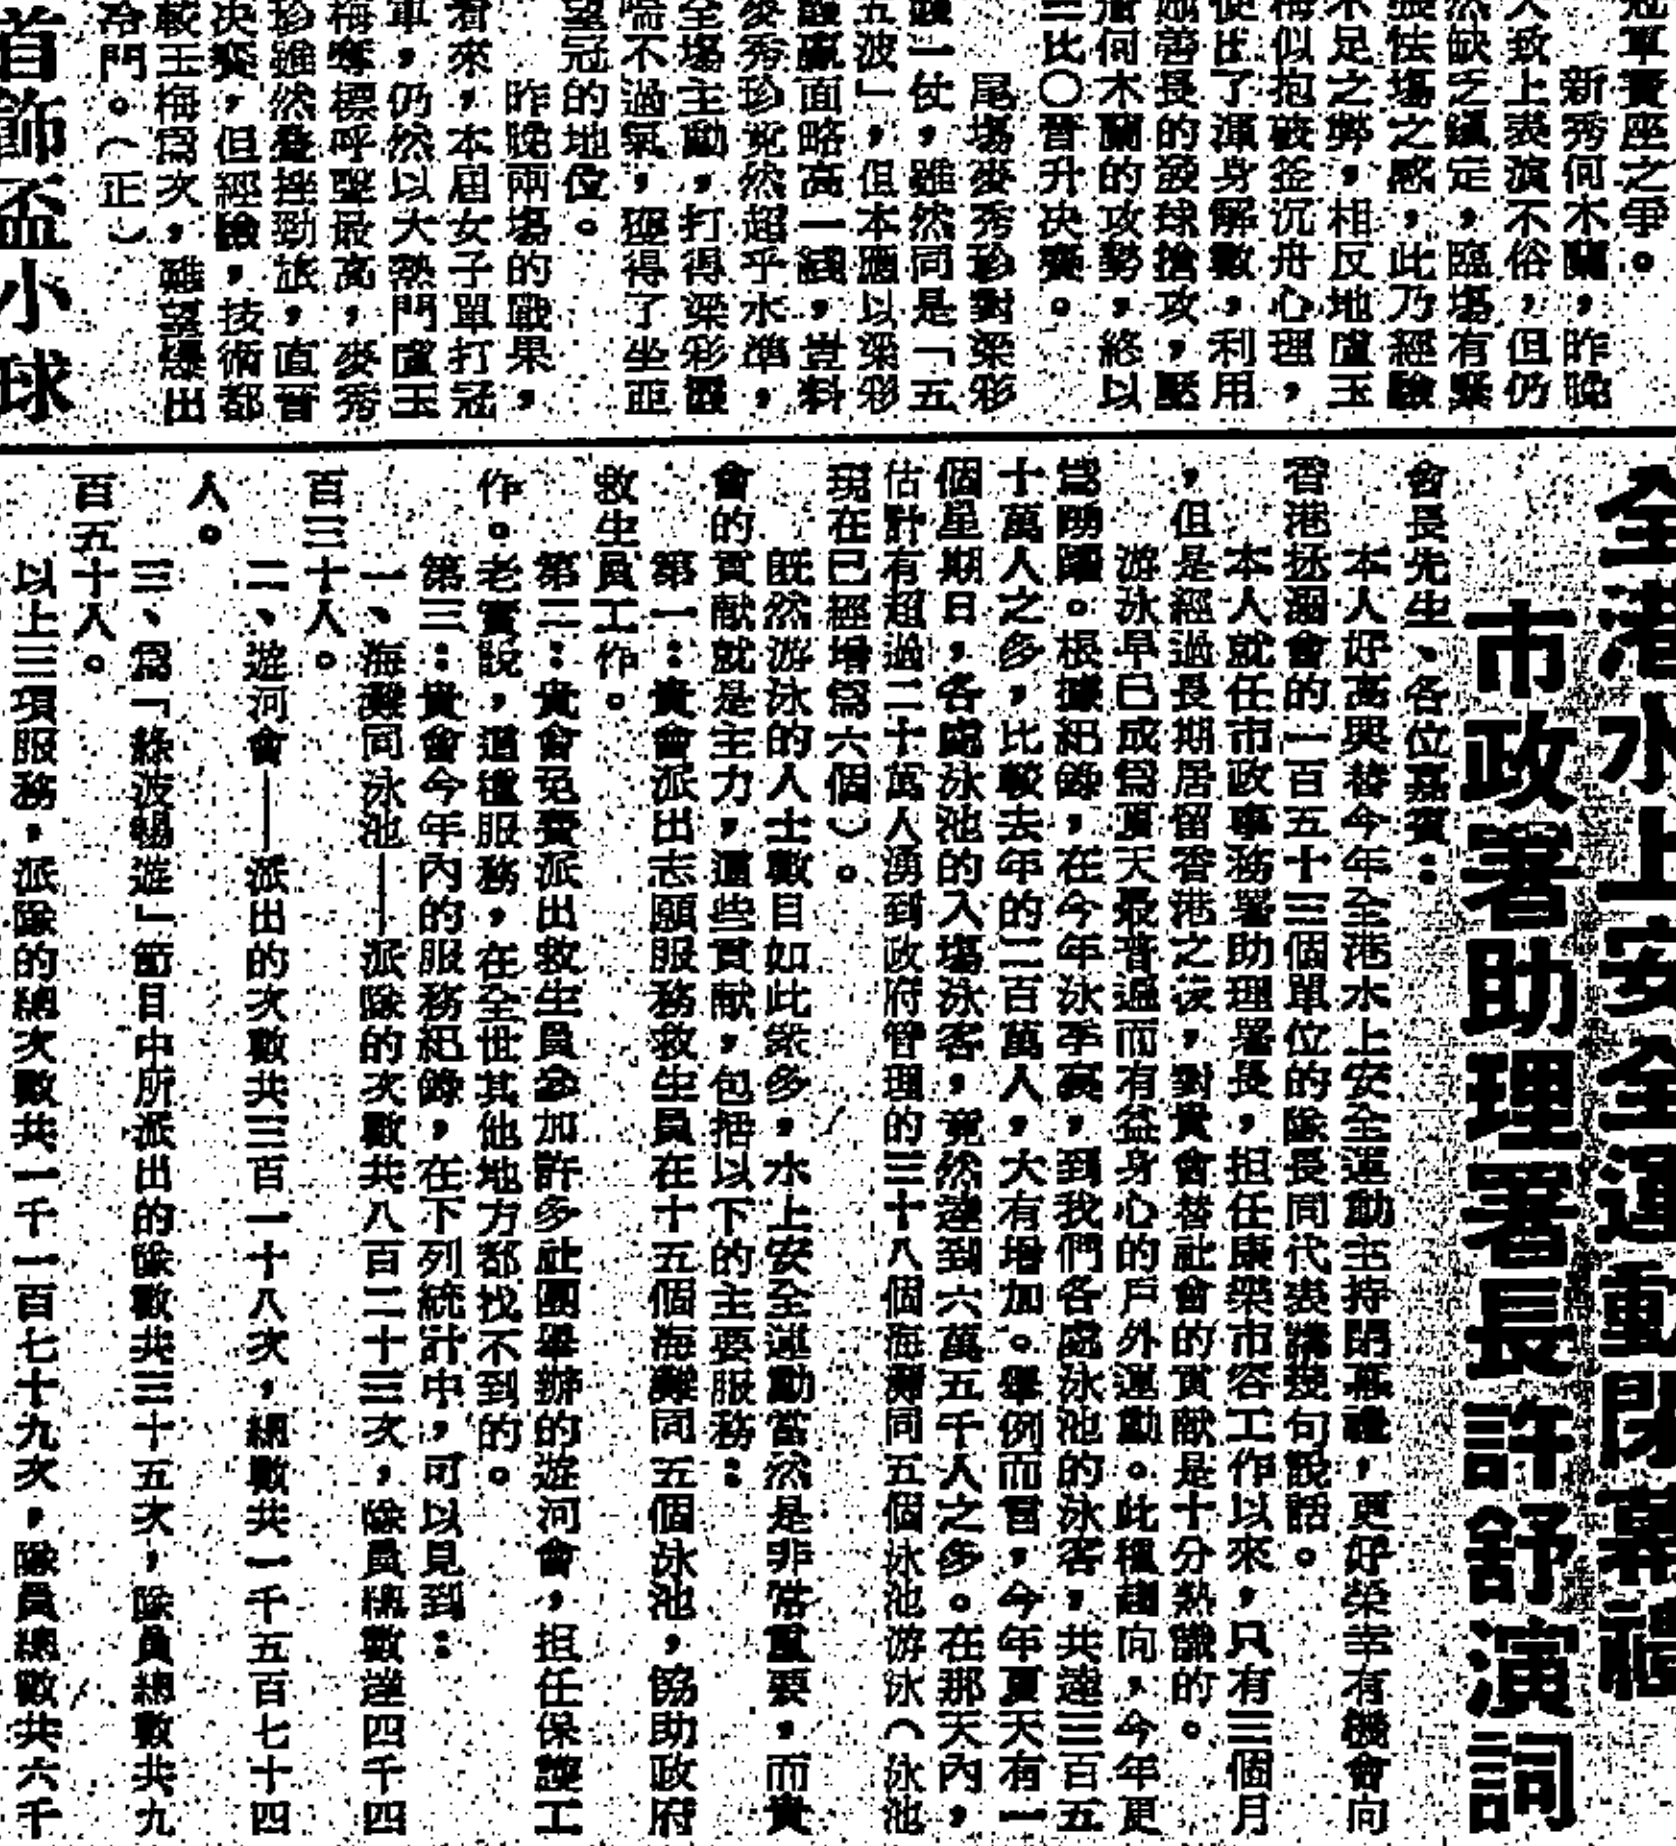 冠軍寶座之爭。
新秀何木蘭，昨晚
大致上表演不俗，但仍
然缺乏鎮定，臨場有緊
張怯場之感，此乃經驗
不足之弊，相反地盧玉
梅似抱破釜沉舟心理，
使出了渾身解數，利用
她善長的發球搶攻，壓
着何木蘭的攻勢，終以
三比〇晉升决賽。
尾場麥秀珍對梁彩
一仗，雖然同是「五
五波」，但本應以梁彩
贏面略高一綫，豈料
麥秀珍竟然超乎水準，
全場主動，打得梁彩
喘不過氣，獲得了坐亞
望冠的地位。
昨晚兩場的戰果，
看來，本屆女子單打冠
軍，仍然以大熱門盧玉
梅奪標呼聲最高，麥秀
珍雖然疊挫勁旅，直晉
决賽，但經驗，技術都
較玉梅爲次，雖望爆出
冷門。（正）
首飾盃小球
全港水上安全運動閉幕禮
市政署助理署長許舒演詞
會長先生、各位嘉賓：
本人好高興替今年全港水上安全運動主持閉幕禮，更好榮幸有機會向
香港拯溺會的一百五十三個單位的隊長同代表講幾句說話。
本人就任市政事務署助理署長，担任康樂市容工作以來，只有三個月
，但是經過長期居留香港之後，對貴會替社會的貢献是十分熱識的。
游泳早已成爲夏天最普遍而有益身心的戶外運動。此種趨向，今年更
爲踴躍。根據紀錄，在今年泳季裏，到我們各處泳池的泳客，共達三百五
十萬人之多，比較去年的二百萬人，大有增加。舉例而言，今年夏天有一
個星期日，各處泳池的入場泳客，竟然達到六萬五千人之多。在那天內，
估計有超過二十萬人湧到政府管理的三十八個海灘同五個泳池游泳（泳池
現在已經增爲六個）。
既然游泳的人士數目如此衆多，水上安全運動當然是非常重要，而貴
會的貢献就是主力，這些貢献，包括以下的主要服務：
第一：貴會派出志願服務救生員在十五個海灘同五個泳池，協助政府
救生員工作。
第二：貴會免費派出救生員參加許多社團舉辦的遊河會，担任保護工
作。老實說，這種服務，在全世其他地方都找不到的。
第三：貴會今年內的服務紀錄，在下列統計中，可以見到：
一、海灘同泳池——派隊的次數共八百二十三次，隊員總數達四千四
百三十人。
二、遊河會——派出的次數共三百一十八次，總數共一千五百七十四
人。
三、爲「綠波暢遊」節目中所派出的隊數共三十五次，隊員總數共九
百五十人。
以上三項服務，派隊的總次數共一千一百七十九次，隊員總數共六千